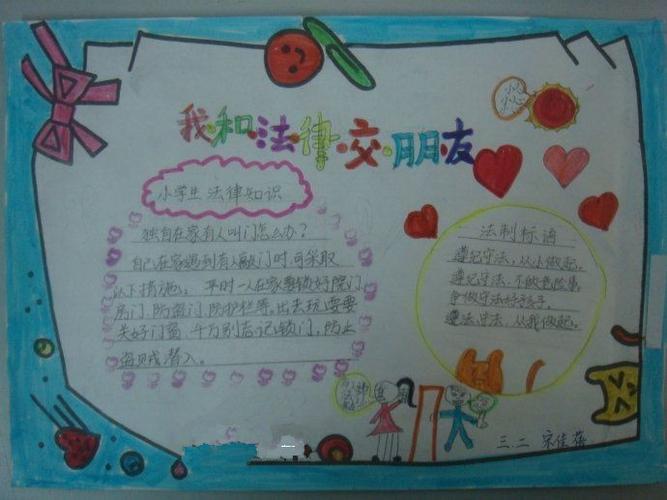 我和法律交朋友
小学生法律知识
独自在家有人叫门怎么办？
自己在家遇到有人敲门时可采取
以下措施： 平时一人在家要锁好院门、
房门、防盗门、防护栏等，出去玩要要
关好门窗、千万别忘记锁门，防止
盗贼潜入。
法制标语
遵纪守法，从小做起。
遵纪守法，不做危险事。
争做守法好孩子。
遵法守法，从我做起。
三.二 宋佳